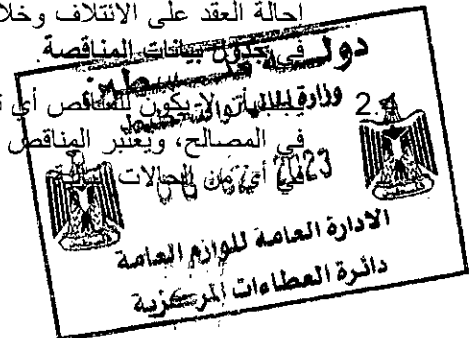 إحالة العقد على الائتلاف وخلا
في جدول بيانات المناقصة.
2.4 يجب أن لا يكون للمناقص أي
في المصالح، ويعتبر المناقص
في أي من الحالات
دولة فلسطين
وزارة المالية
الادارة العامة للوازم العامة
دائرة العطاءات المركزية